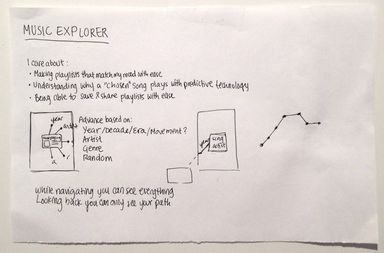 MUSIC EXPLORER
I care about:
• Making playlists that match my mood with ease
• Understanding why a "chosen" song plays with predictive technology
• Being able to save & share playlists with ease
year
artist
Advance based on:
Year/Decade/Era/Movement?
Artist
Genre
Random
year
song
artist
While navigating you can see everything
Looking back you can only see your path